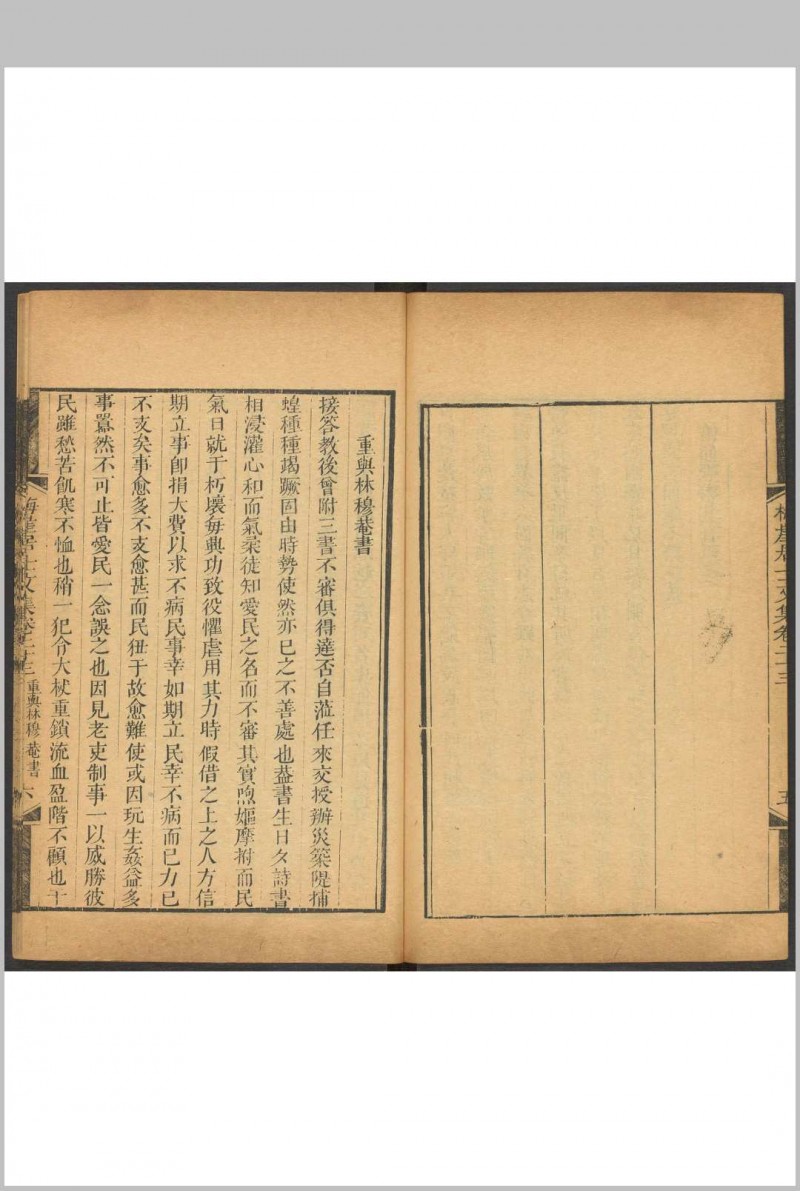 梅崖居士文集卷二十三
五
重與林穆菴書
接答教後曾附三書不審俱得達否自蒞任來交授辦災築隄捕
蝗種種竭蹶固由時勢使然亦已之不善處也蓋書生日夕詩書
相浸灌心和而氣柔徒知愛民之名而不審其實煦嫗摩拊而民
氣日就于朽壞每興功致役懼虐用其力時假借之上之人方信
期立事卽捐大費以求不病民事幸如期立民幸不病而已力已
不支矣事愈多不支愈甚而民狃于故愈難使或因玩生姦益多
事囂然不可止皆愛民一念誤之也因見老吏制事一以威勝彼
民雖愁苦飢寒不恤也稍一犯令大杖重鎖流血盈階不顧也于
梅崖居士文集卷二十三
重與林穆菴書
六